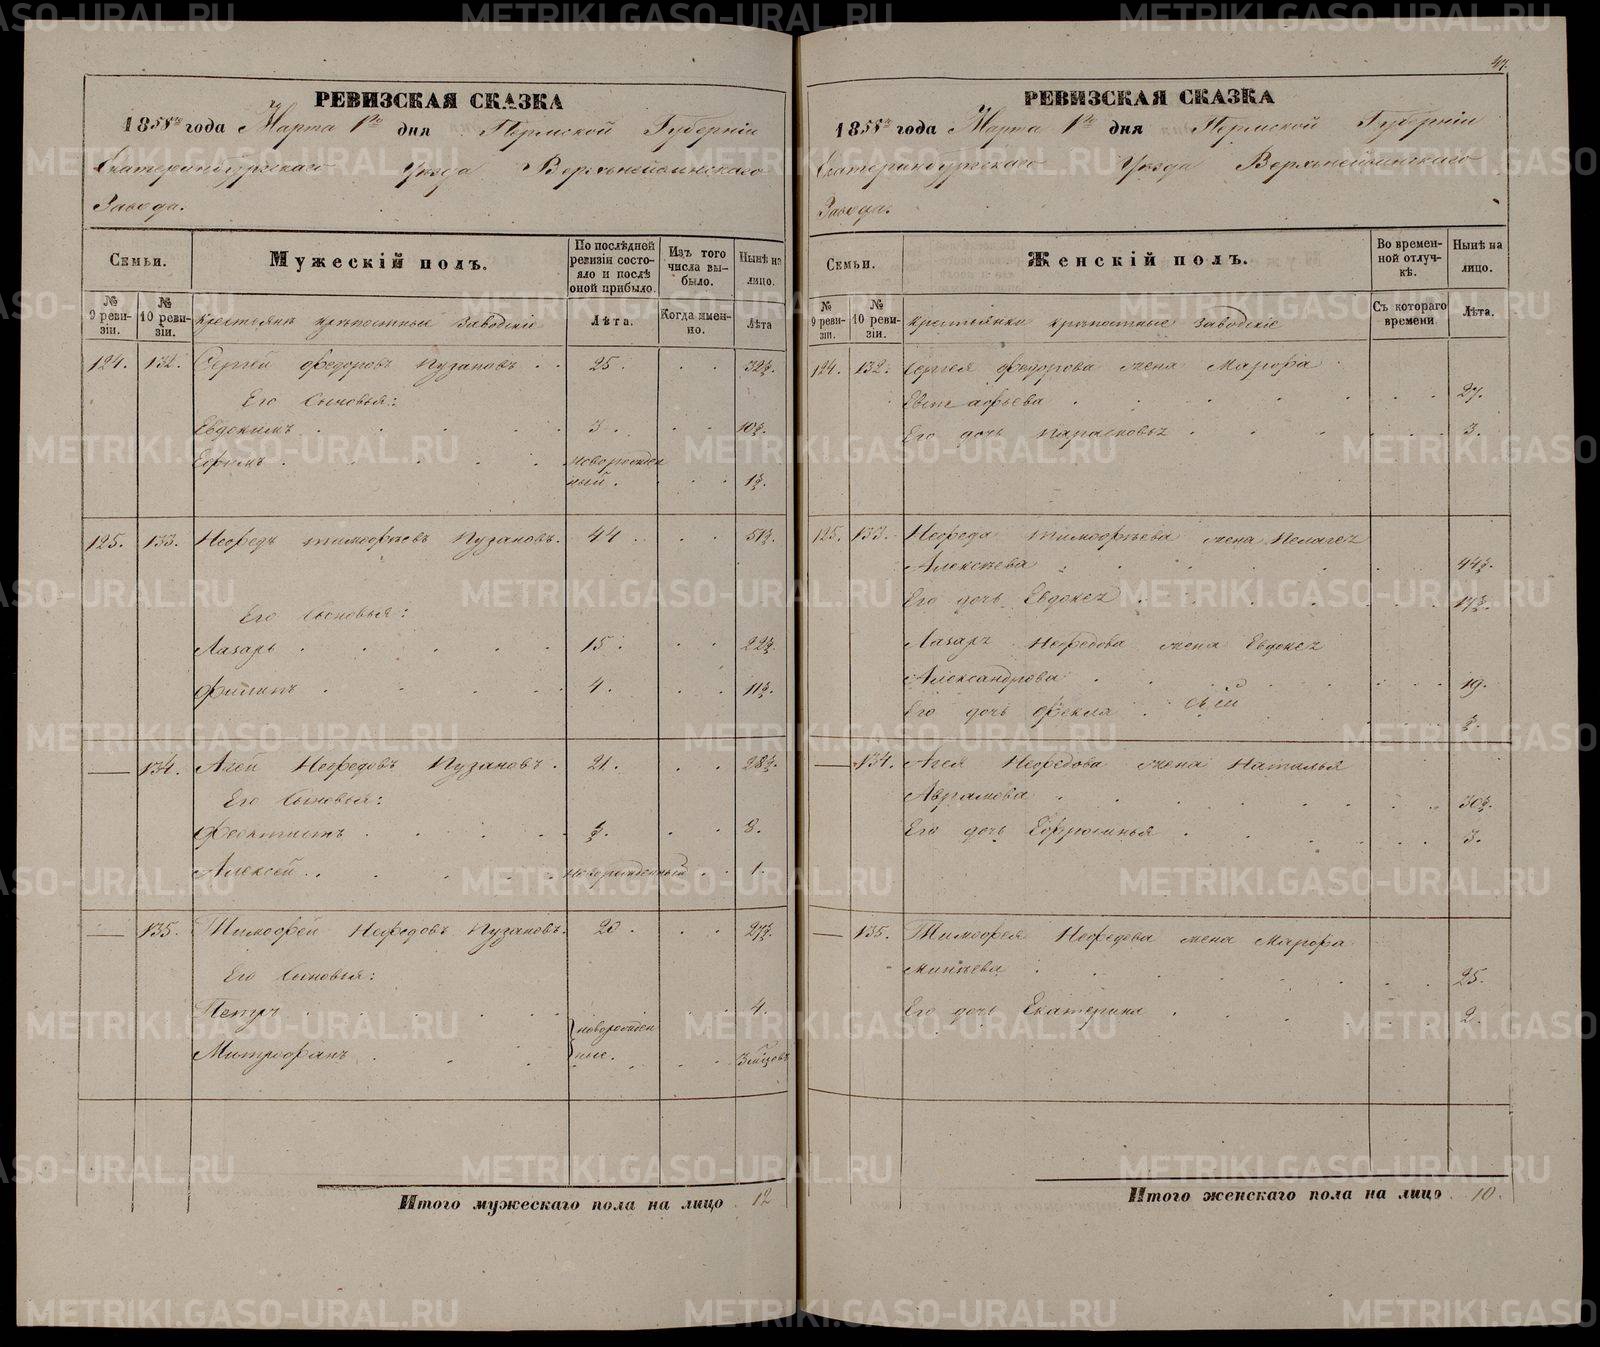 47.
РЕВИЗСКАЯ СКАЗКА
1858го года Марта 1го дня Пермской Губерніи
Екатеринбургскаго Уезда Верхънейвинскаго
Завода.
Семьи.
Мужескій полъ.
По послѣдней ревизіи состояло и послѣ оной прибыло.
Изъ того числа выбыло.
Нынѣ на лицо.
№ 9 ревизіи.
№ 10 ревизіи.
Крестьянъ крѣпостные заводскіе
Лѣта.
Когда именно.
Лѣта
124. 132. Сергей Федоровъ Пузановъ 25. 32½.
Его Сыновья:
Евдокимъ 3. 10½.
Ефимъ новорожден
ный. 1½.
125. 133. Нефедъ Тимофѣевъ Пузановъ. 44 51½.
Его Сыновья:
Лазарь 15. 22½.
Филипъ 4. 11½.
— 134. Агей Нефедовъ Пузановъ. 21. 28½.
Его Сыновья:
Феоктистъ ½. 8.
Алексей новорожденный 1.
— 135. Тимофей Нефедовъ Пузановъ. 20. 27½.
Его Сыновья:
Петръ 4.
новорожден
Митрофанъ ные. 3 мѣсцовъ
Итого мужескаго пола на лицо 12
РЕВИЗСКАЯ СКАЗКА
1858го года Марта 1го дня Пермской Губерніи
Екатеринбургскаго Уезда Верхънейвинскаго
Завода.
Семьи.
Женскій полъ.
Во временной отлучкѣ.
Нынѣ на лицо.
№ 9 ревизіи.
№ 10 ревизіи.
Крестьянки крѣпостные заводскіе
Съ котораго времени
Лѣта.
124. 132. Сергея Федорова жена Марфа
Евстафьева 27.
Его дочь Парасковья 3.
125. 133. Нефеда Тимофѣева жена Пелагея
Алексѣева 44½.
Его дочь Евдокея 17½.
Лазаря Нефедова жена Евдокея
Александрова 19.
Его дочь Фекла ½.
— 134. Агея Нефедова жена Наталья
Аврамова 30½.
Его дочь Ефросинья 3.
— 135. Тимофея Нефедова жена Марфа
Минѣева 25.
Его дочь Екатерина 2.
Итого женскаго пола на лицо 10.
METRIKI.GASO-URAL.RU